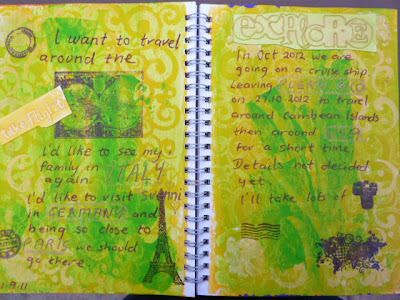 I want to travel
around the
take flight
I'd like to see my
family in ITALY
again.
I'd like to visit
in GERMANY and
being so close to
PARIS we should
go there.
EXPLORE
In Oct 2012 we are
going on a cruise ship
Leaving
on 27.10.2012 to travel
around Carribean Islands
then around
for a short time.
Details not decided
yet.
I'll take lots of